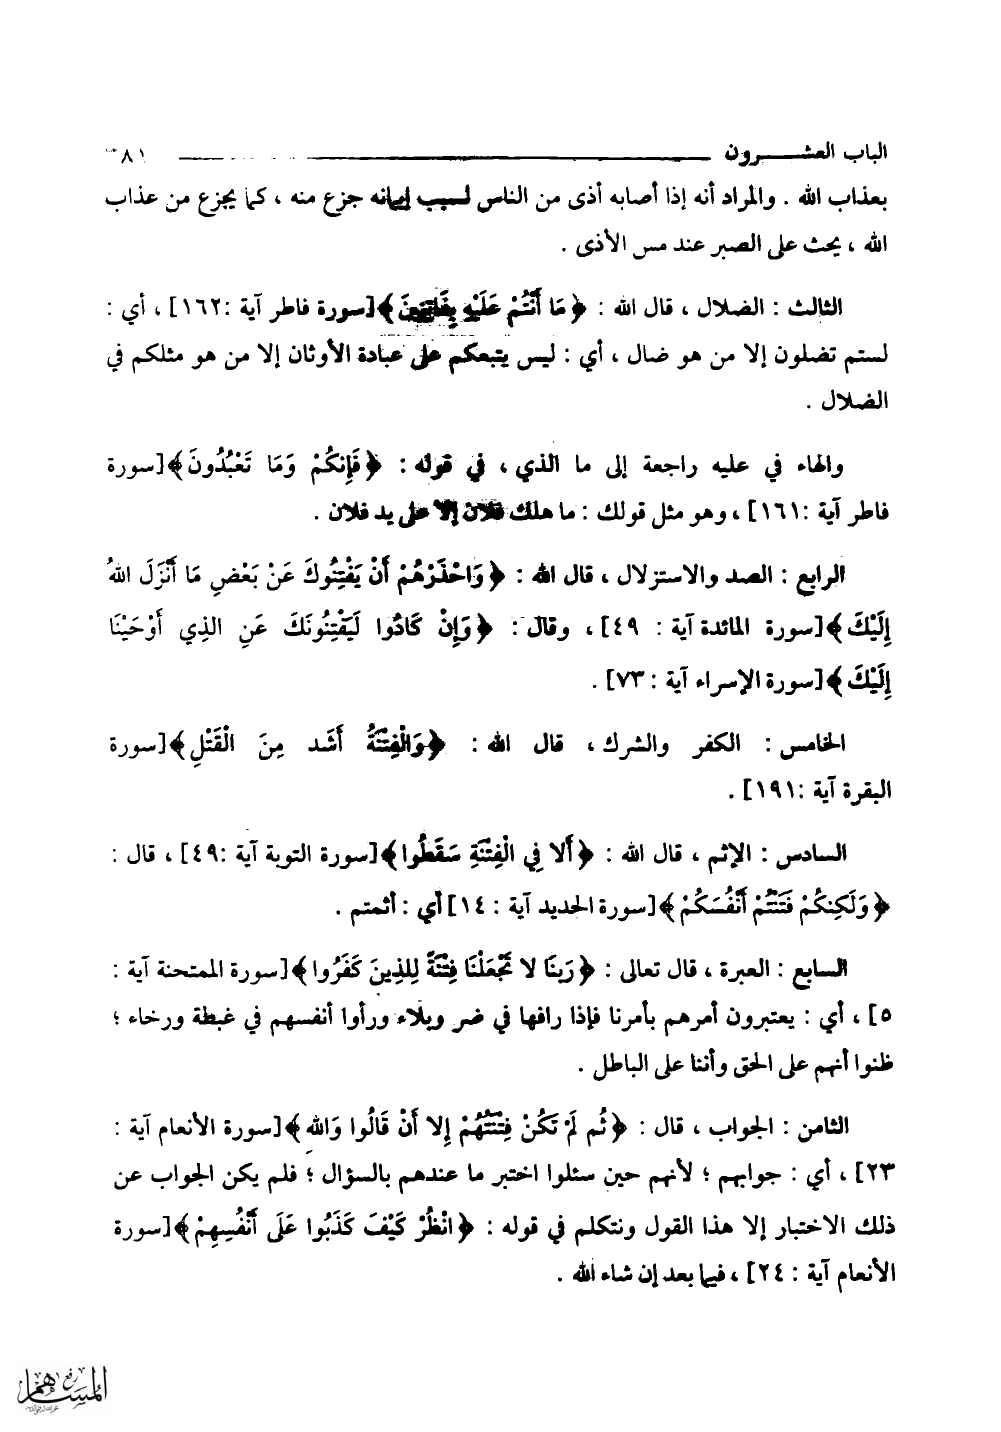 الباب العشـــرون ٣٨١
بعذاب الله . والمراد أنه إذا أصابه أذى من الناس لسبب إيمانه جزع منه ، كما يجزع من عذاب
الله ، يحث على الصبر عند مس الأذى .
الثالث : الضلال ، قال الله : ﴿ مَا أَنْتُمْ عَلَيْهِ بِفَاتِنِينَ ﴾[سورة فاطر آية :١٦٢] ، أي :
لستم تضلون إلا من هو ضال ، أي : ليس يتبعكم على عبادة الأوثان إلا من هو مثلكم في
الضلال .
والهاء في عليه راجعة إلى ما الذي ، في قوله : ﴿ فَإِنكُمْ وَمَا تَعْبُدُونَ ﴾[سورة
فاطر آية :١٦١] ، وهو مثل قولك : ما هلك فلان إلا على يد فلان .
الرابع : الصد والاستزلال ، قال الله : ﴿ وَاحْذَرْهُمْ أَنْ يَفْتِنُوكَ عَنْ بَعْضِ مَا أَنْزَلَ اللهُ
إِلَيْكَ ﴾[سورة المائدة آية : ٤٩] ، وقال : ﴿ وَإِنْ كَادُوا لَيَفْتِنُونَكَ عَنِ الذِي أَوْحَيْنَا
إِلَيْكَ ﴾[سورة الإسراء آية : ٧٣] .
الخامس : الكفر والشرك ، قال الله : ﴿وَالْفِتْنَةُ أَشَد مِنَ الْقَتْلِ ﴾[سورة
البقرة آية :١٩١] .
السادس : الإثم ، قال الله : ﴿ أَلا فِي الْفِتْنَةِ سَقَطُوا ﴾[سورة التوبة آية :٤٩] ، قال :
﴿ وَلَكِنكُمْ فَتَنْتُمْ أَنْفُسَكُمْ ﴾[سورة الحديد آية : ١٤] أي : أثمتم .
السابع : العبرة ، قال تعالى : ﴿ رَبنَا لا تَجْعَلْنَا فِتْنَةً لِلذِينَ كَفَرُوا ﴾[سورة الممتحنة آية :
٥] ، أي : يعتبرون أمرهم بأمرنا فإذا رافها في ضر وبلاء ورأوا أنفسهم في غبطة ورخاء ؛
ظنوا أنهم على الحق وأننا على الباطل .
الثامن : الجواب ، قال : ﴿ ثُم لَمْ تَكُنْ فِتْنَتُهُمْ إِلا أَنْ قَالُوا وَالله ﴾[سورة الأنعام آية :
٢٣] ، أي : جوابهم ؛ لأنهم حين سئلوا اختبر ما عندهم بالسؤال ؛ فلم يكن الجواب عن
ذلك الاختبار إلا هذا القول ونتكلم في قوله : ﴿ انْظُرْ كَيْفَ كَذَبُوا عَلَى أَنْفُسِهِمْ ﴾[سورة
الأنعام آية : ٢٤] ، فيما بعد إن شاء الله .
رفع
المساهم